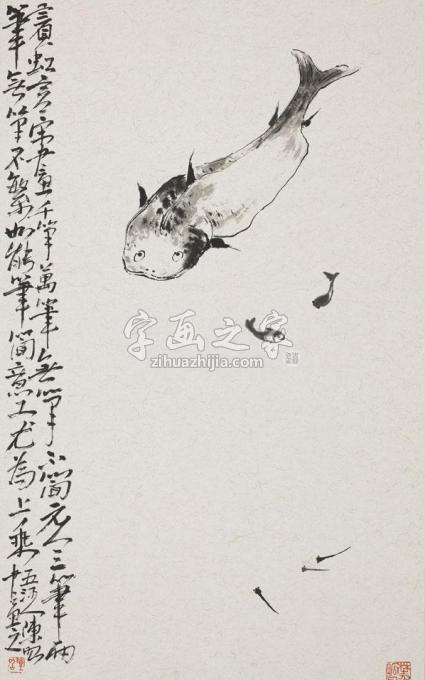 賓虹言宋畫千筆萬筆無筆不簡元人三筆兩
筆無筆不繁如能筆簡意工尤為上乘
字画之家
zihuazhijia.com